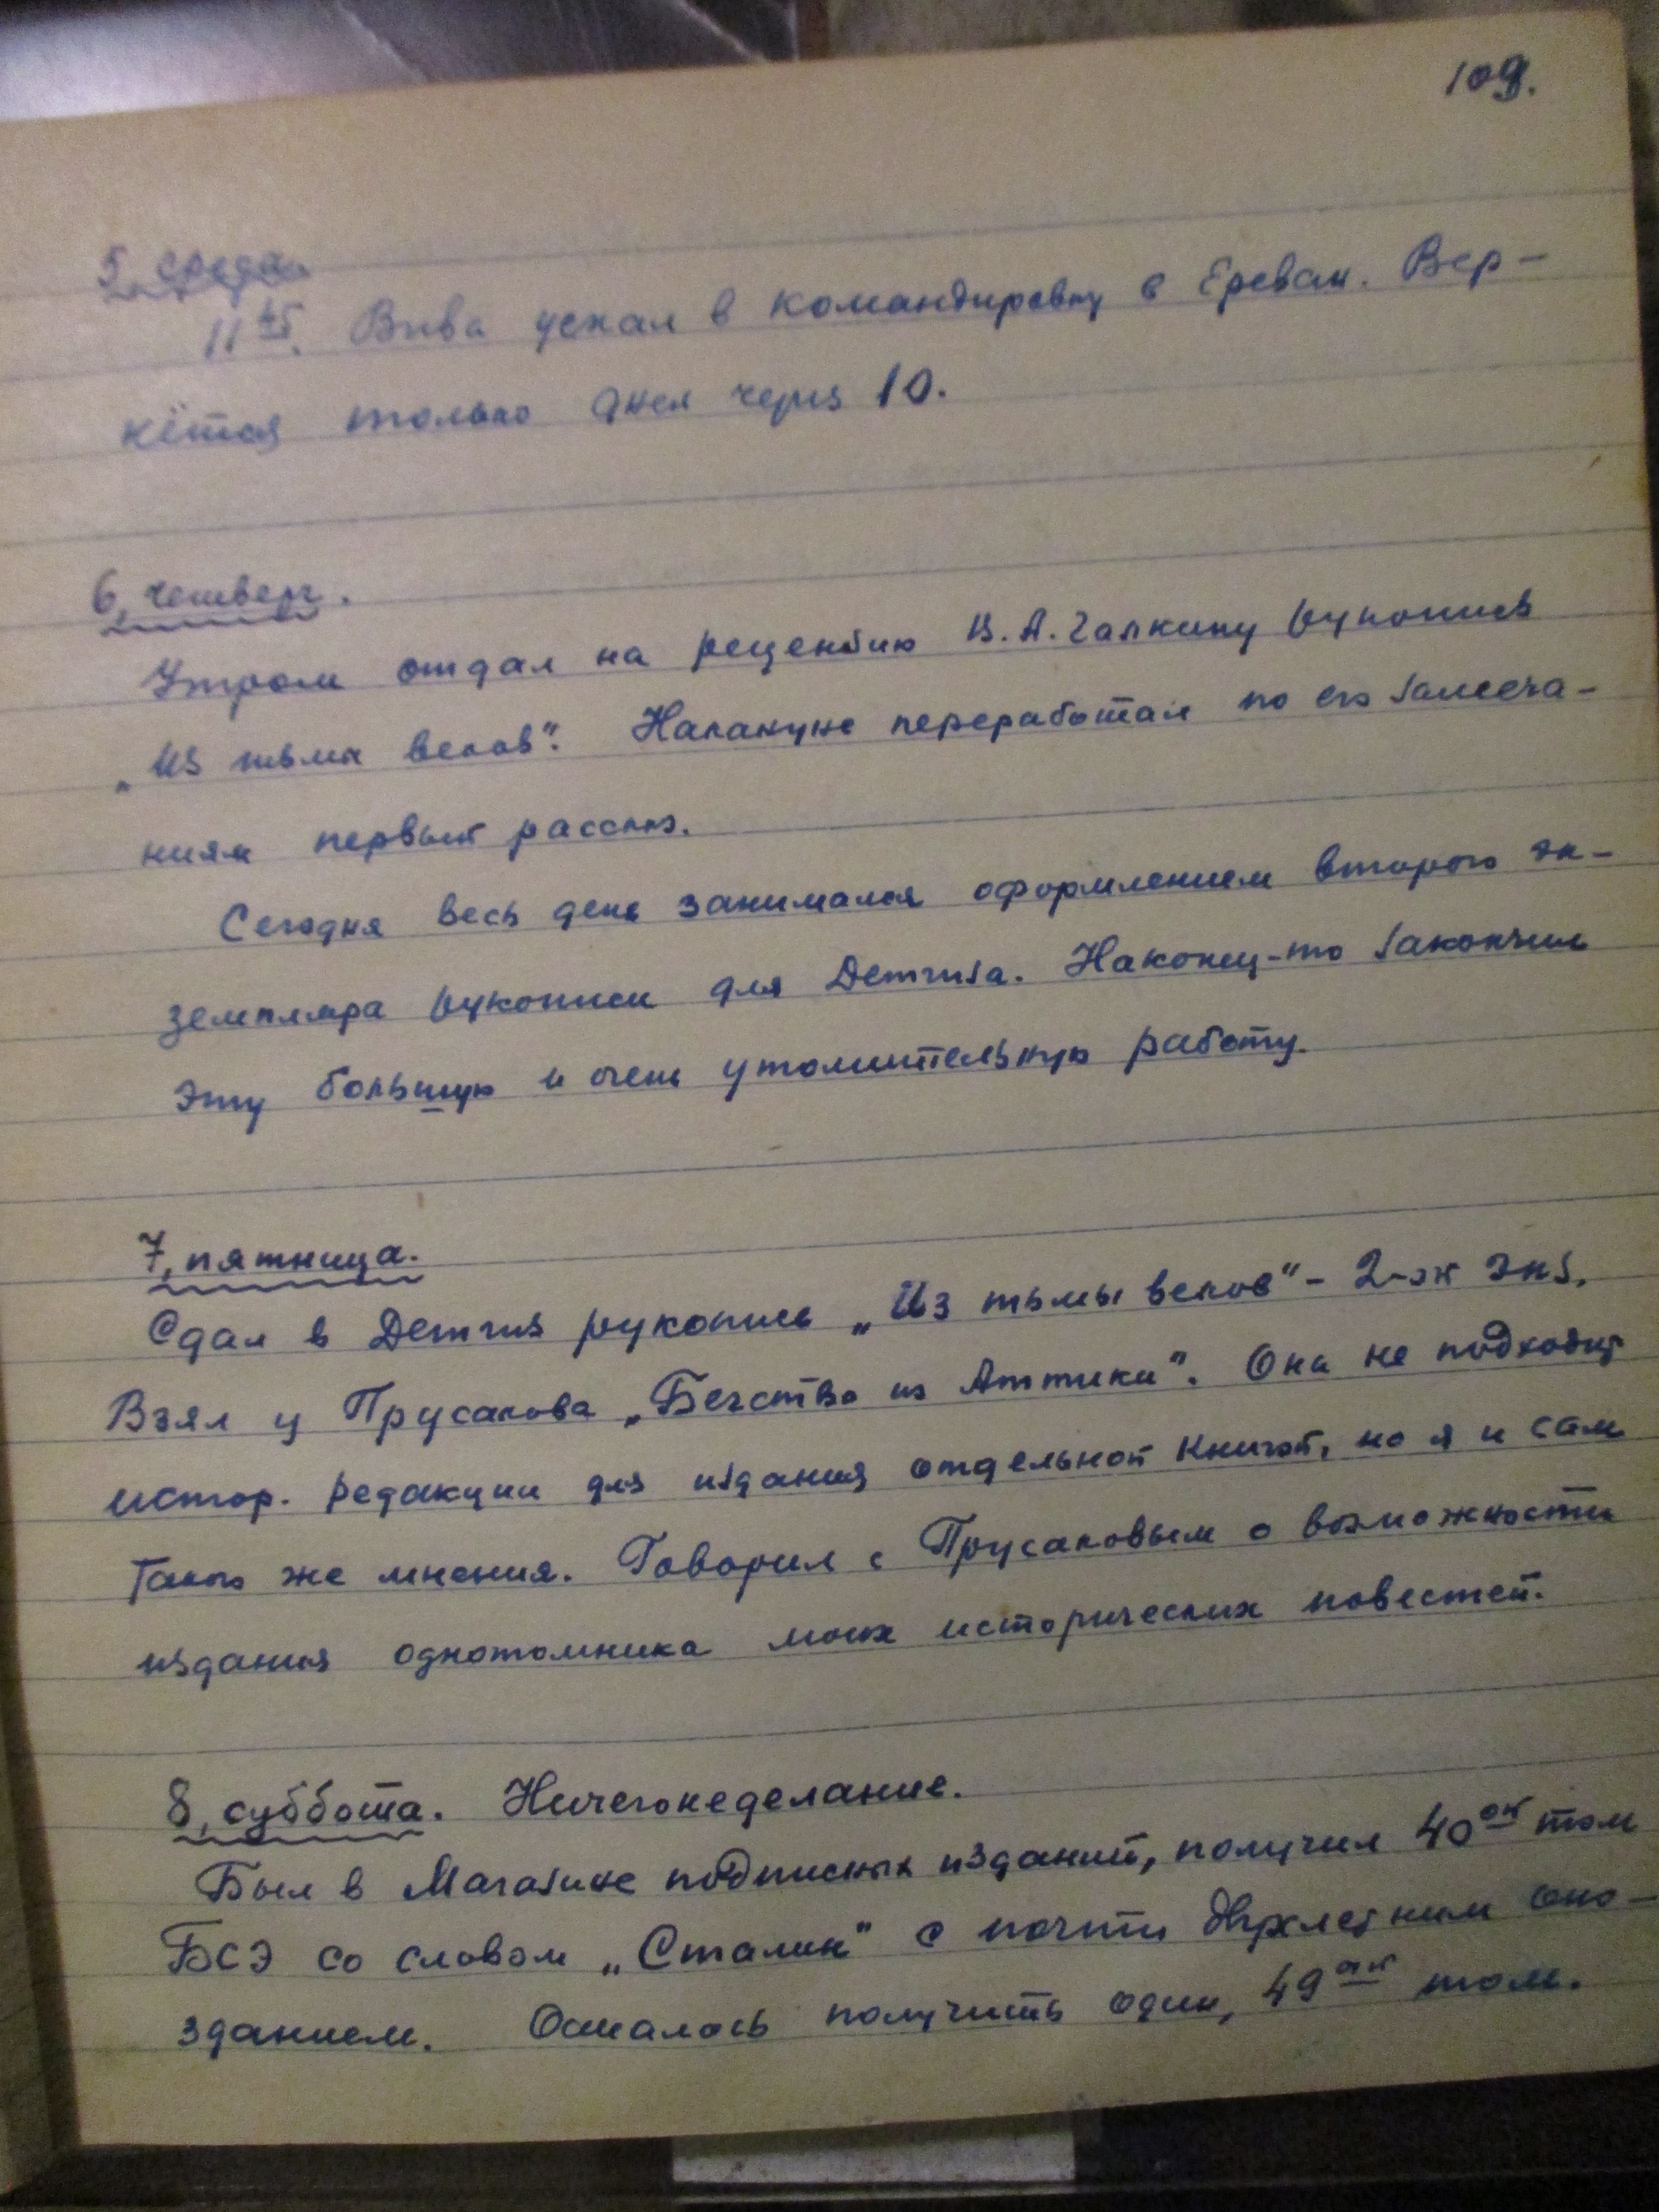 109.
5, среда.
11⁴⁵. Вива уехал в командировку в Ереван. Вер-
нётся только дней через 10.
6, четверг.
Утром отдал на рецензию В.А. Галкину рукопись
„Из тьмы веков". Накануне переработал по его замеча-
ниям первый рассказ.
Сегодня весь день занимался оформлением второго эк-
земпляра рукописи для Детгиза. Наконец-то закончил
эту большую и очень утомительную работу.
7, пятница.
Сдал в Детгиз рукопись „Из тьмы веков" – 2-ой экз.
Взял у Прусакова „Бегство из Аттики". Она не подходит
истор. редакции для издания отдельной книгой, но я и сам
такого же мнения. Говорил с Прусаковым о возможности
издания однотомника моих исторических повестей.
8, суббота. Ничегонеделание.
Был в Магазине подписных изданий, получил 40ой том
БСЭ со словом „Сталин" с почти двухлетним опо-
зданием. Осталось получить один, 49ый том.